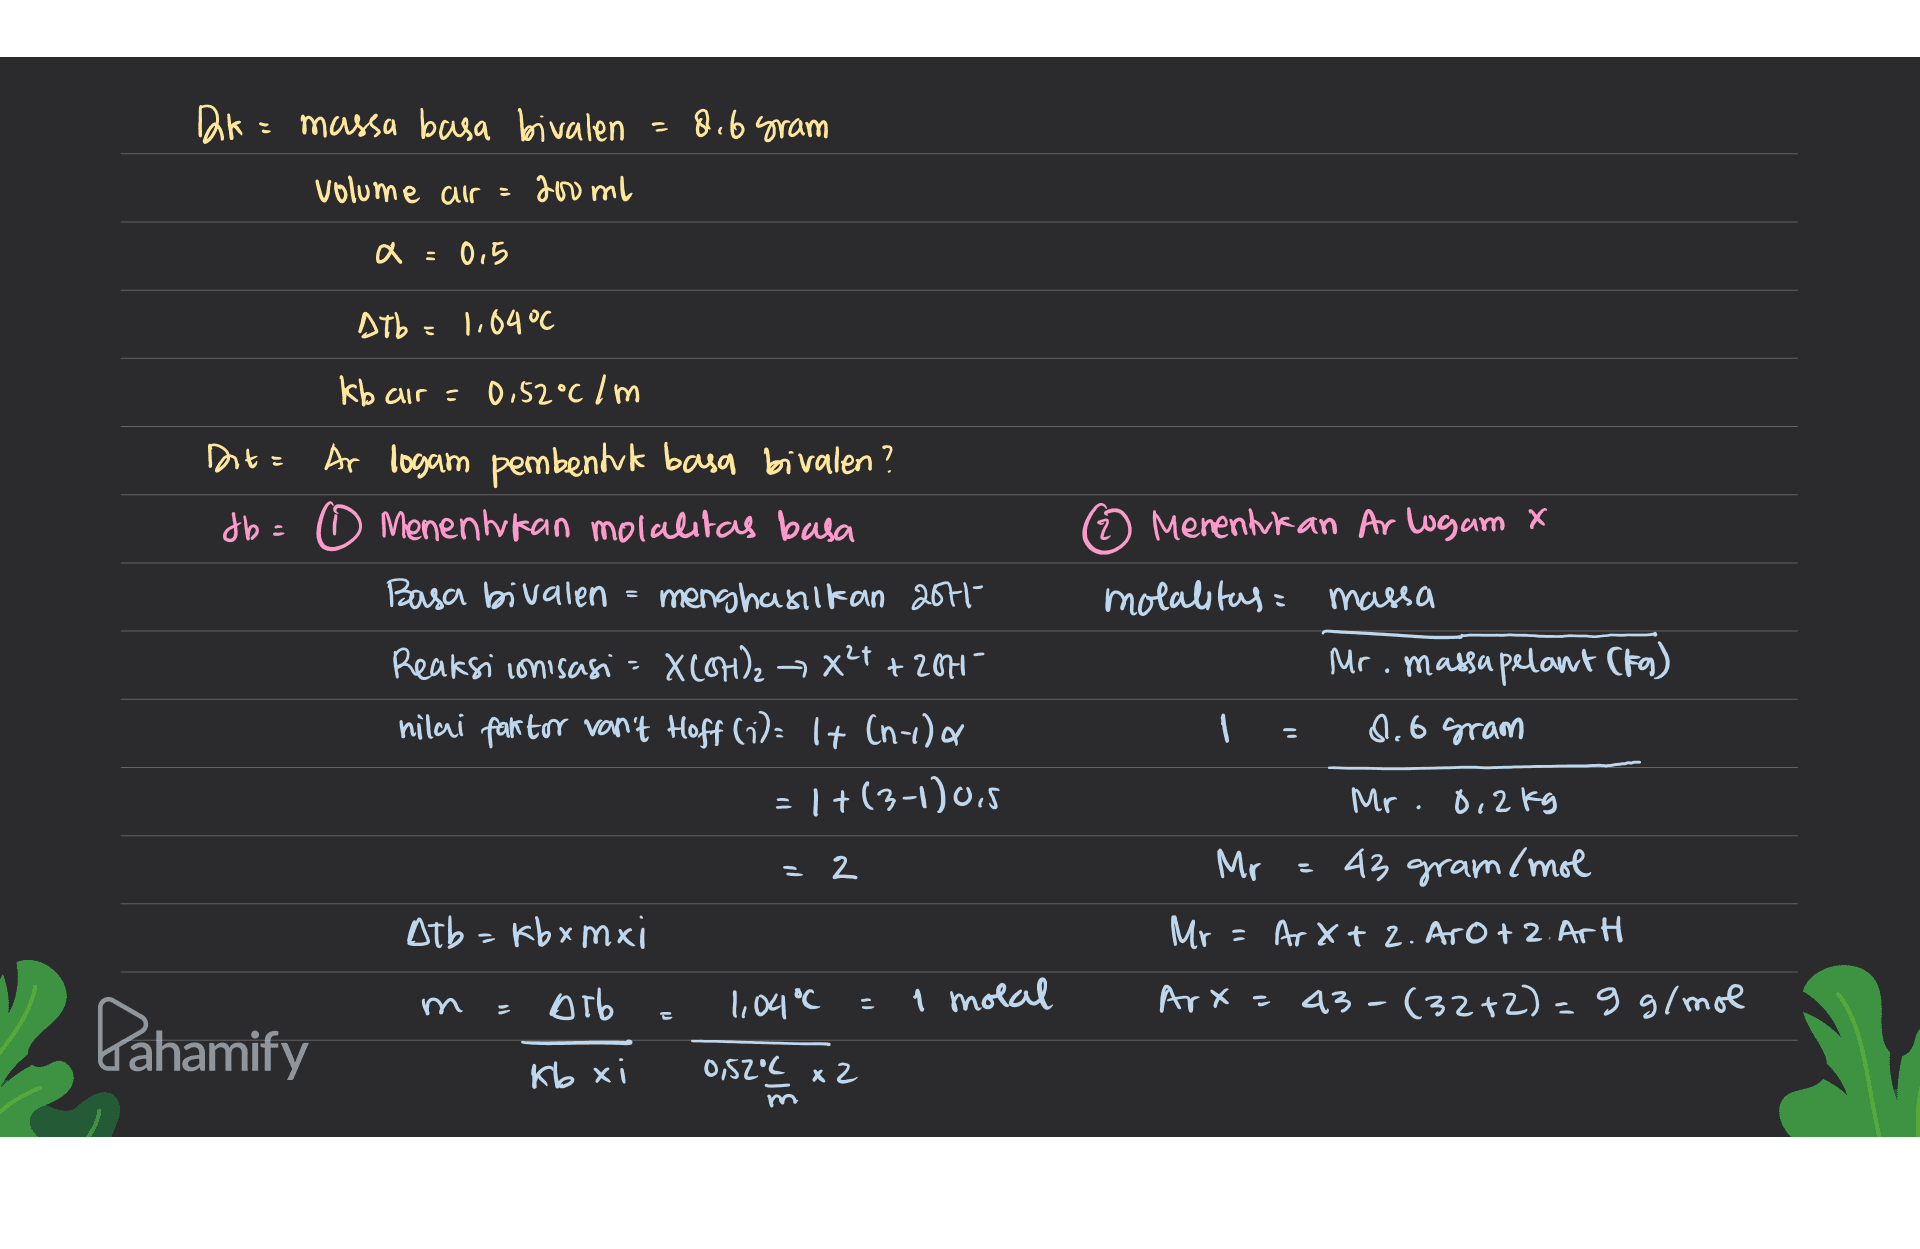 Dik = massa basa bivalen = 8,6 gram
Volume air = 200 mL
α = 0,5
ΔTb = 1,04 °C
Kb air = 0,52 °C / m
Dit = Ar logam pembentuk basa bivalen ?
Jb = ① Menentukan molalitas basa
Basa bivalen = menghasilkan 2OH⁻
Reaksi ionisasi = X(OH)₂ → X²⁺ + 2OH⁻
nilai faktor van't Hoff (i) = 1 + (n-1) α
= 1 + (3-1) 0,5
= 2
ΔTb = Kb x m x i
m = ΔTb = 1,04 °C = 1 molal
Kb x i 0,52 °C x 2
m
② Menentukan Ar logam X
molalitas = massa
Mr . massa pelarut (kg)
1 = 8,6 gram
Mr . 0,2 kg
Mr = 43 gram/mol
Mr = Ar X + 2. Ar O + 2. Ar H
Ar X = 43 - (32+2) = 9 g/mol
Pahamify